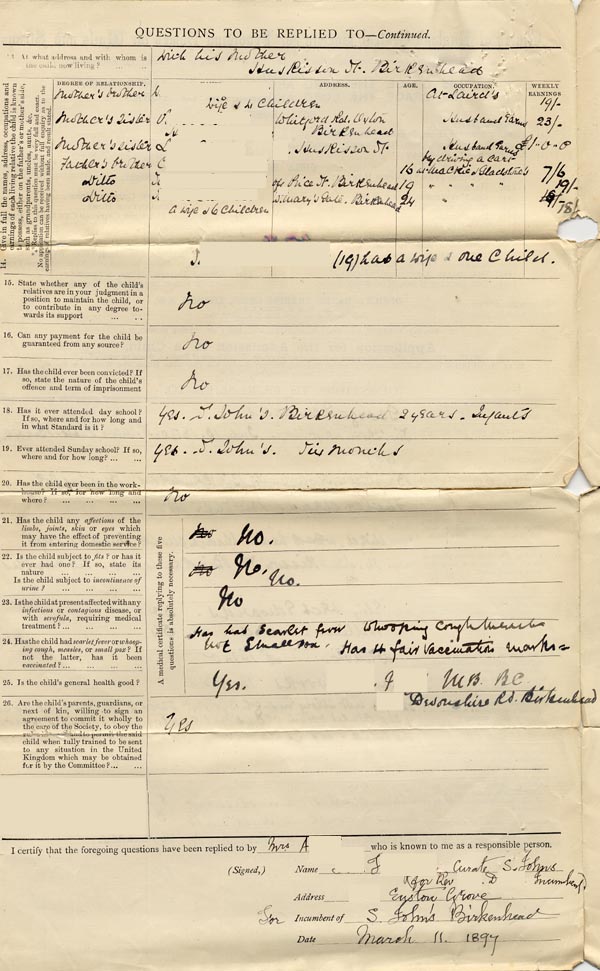 QUESTIONS TO BE REPLIED TO—Continued.
At what address and with whom is the child now living? ...
with his mother
Huskisson St. Birkenhead
14. Give in full the names, address, occupations and earnings of each living relative the child is known to possess, either on the father's or mother's side, such as grandparents, uncles, aunts, &c.
DEGREE OF RELATIONSHIP. ADDRESS. AGE. OCCUPATION. WEEKLY EARNINGS
Mother's brother At Laird's 19/-
wife & 4 Children
Mother's Sister Whitford Rd. Birkenhead Husband Earns 23/-
Mother's sister Huskisson St Husband Earns £1-0-0
by driving a cart
Father's brother 16 7/6
Ditto off Price St. Birkenhead 19 " " 19/-
Ditto St Mary's Gate. Birkenhead 24 " " 18/-
A wife & 6 Children
J. (19) has a wife & one Child.
15. State whether any of the child's relatives are in your judgment in a position to maintain the child, or to contribute in any degree towards its support ... ...
No
16. Can any payment for the child be guaranteed from any source?
No
17. Has the child ever been convicted? If so, state the nature of the child's offence and term of imprisonment
No
18. Has it ever attended day school? If so, where and for how long and in what Standard is it? ...
Yes. S. John's. Birkenhead 2 years. Infants
19. Ever attended Sunday school? If so, where and for how long? ... ...
Yes. S. John's. Six months
20. Has the child ever been in the workhouse? If so, for how long and where? ... ... ... ...
No
A medical certificate replying to these five questions is absolutely necessary.
21. Has the child any affections of the limbs, joints, skin or eyes which may have the effect of preventing it from entering domestic service?
No.
22. Is the child subject to fits? or has it ever had one? If so, state its nature ... ... ... ...
No.
Is the child subject to incontinence of urine? ... ... ... ...
No.
23. Is the child at present affected with any infectious or contagious disease, or with scrofula, requiring medical treatment? ... ... ...
No
24. Has the child had scarlet fever or whooping cough, measles, or small pox? If not the latter, has it been vaccinated? ... ... ...
Has had Scarlet fever Whooping Cough Measles
not Smallpox. Has 4 fair vaccination marks=
25. Is the child's general health good?
Yes. M.B. B.C.
Devonshire Rd. Birkenhead
26. Are the child's parents, guardians, or next of kin, willing to sign an agreement to commit it wholly to the care of the Society, to obey the and to permit the said child when fully trained to be sent to any situation in the United Kingdom which may be obtained for it by the Committee? ... ...
Yes
I certify that the foregoing questions have been replied to by Mrs A who is known to me as a responsible person.
(Signed,) Name J Curate S. Johns
for Rev D Incumbent
Address Euston Grove
For Incumbent of S. John's Birkenhead
Date March 11. 1897